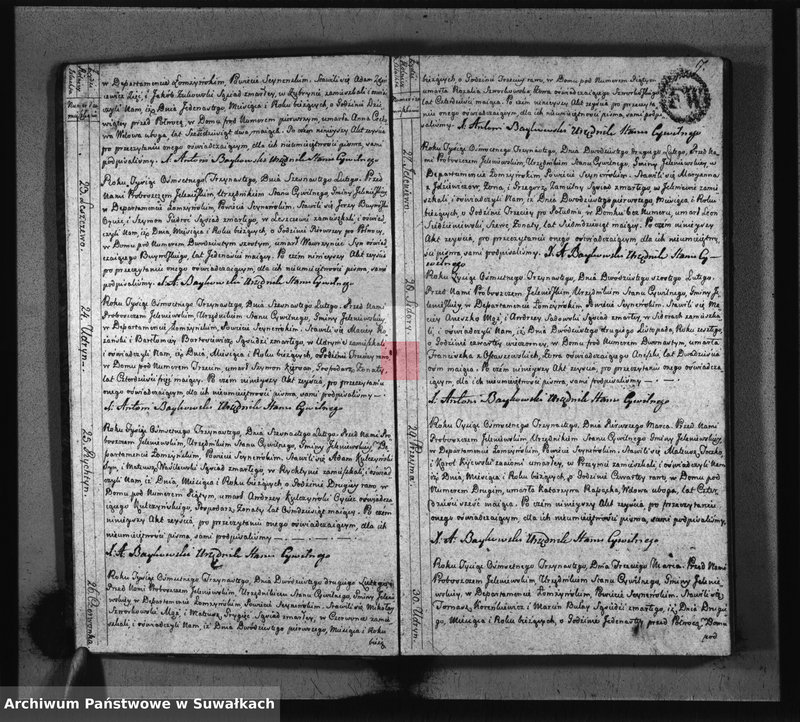 w Departamencie Łomżyńskim, Powiecie Seyneńskim. Stawili się Adam
Zięć, i Jakób Żukowski Sąsiad zmarłey, w Rybynie zamieszkali i oświad-
czyli Nam, iż Dnia Jedenastego, Miesiąca i Roku bieżących, o Godzinie Dzie-
wiątey przed Północą, w Domu pod Numerem pierwszym, umarła Anna
Wdowa uboga, lat Sześćdziesiąt dwa maiąca. Po czem ninieyszy Akt zeyścia
po przeczytaniu onego oświadczaiącym, dla ich nieumieiętności pisma, sami
podpisaliśmy. X. Antoni Baykowski Urzędnik Stanu Cywilnego
23. Leszczewo.
Roku Tysiąc Ośmsetnego Trzynastego, Dnia Szesnastego Lutego. Przed
Nami Proboszczem Jeleniewskim, Urzędnikiem Stanu Cywilnego, Gminy Jeleniewskiey
w Departamencie Łomżyńskim, Powiecie Seyneńskim. Stawili się Jerzy
Oyciec, i Szymon Sąsiad zmarłego, w Leszczewie zamieszkali i oświad-
czyli Nam, iż Dnia, Miesiąca i Roku bieżących, o Godzinie Pierwszey po Północy,
w Domu pod Numerem Dwudziestym szóstym, umarł Wawrzyniec Syn oświad-
czaiącego lat Jedenaście maiący. Po czem ninieyszy Akt zeyścia,
po przeczytaniu onego oświadczaiącym, dla ich nieumieiętności pisma, sami
podpisaliśmy. X. A. Baykowski Urzędnik Stanu Cywilnego
24. Udryn.
Roku Tysiąc Ośmsetnego Trzynastego, Dnia Szesnastego Lutego. Przed Nami
Proboszczem Jeleniewskim, Urzędnikiem Stanu Cywilnego, Gminy Jeleniewskiey
w Departamencie Łomżyńskim, Powiecie Seyneńskim. Stawili się Maciey
i Bartłomiey Borkowski Sąsiedzi zmarłego, w Udrynie zamieszkali
i oświadczyli Nam, iż Dnia, Miesiąca i Roku bieżących, o Godzinie Trzeciey rano,
w Domu pod Numerem Trzecim, umarł Szymon Gospodarz, Żonaty,
lat Czterdzieści pięć maiący. Po czem ninieyszy Akt zeyścia, po przeczytaniu
onego oświadczaiącym, dla ich nieumieiętności pisma, sami podpisaliśmy
X. Antoni Baykowski Urzędnik Stanu Cywilnego
25. Rychtyn.
Roku Tysiąc Ośmsetnego Trzynastego, Dnia Szesnastego Lutego. Przed Nami Pro-
boszczem Jeleniewskim, Urzędnikiem Stanu Cywilnego, Gminy Jeleniewskiey, w De-
partamencie Łomżyńskim, Powiecie Seyneńskim. Stawili się Adam Kulczyński
Syn, i Mateusz Wasilewski Sąsiad zmarłego, w Rychtynie zamieszkali, i oświad-
czyli Nam, iż Dnia, Miesiąca i Roku bieżących o Godzinie Drugiey rano, w
Domu pod Numerem Piątym, umarł Andrzey Kulczyński Oyciec oświadcza-
iącego Kulczyńskiego, Gospodarz, Żonaty, lat Ośmdziesiąt maiący. Po czem
ninieyszy Akt zeyścia, po przeczytaniu onego oświadczaiącym, dla ich
nieumieiętności pisma, sami podpisaliśmy
X. A. Baykowski Urzędnik Stanu Cywilnego
26. Czerwonka.
Roku Tysiąc Ośmsetnego Trzynastego, Dnia Dwudziestego drugiego Lutego.
Przed Nami Proboszczem Jeleniewskim, Urzędnikiem Stanu Cywilnego, Gminy Jelenie-
wskiey w Departamencie Łomżyńskim, Powiecie Seyneńskim. Stawili się Mikołay
Mąż, i Mateusz Sąsiad zmarłey, w Czerwonce zamie-
szkali, i oświadczyli Nam, iż Dnia Dwudziestego pierwszego, Miesiąca i Roku
bieżą
17
bieżących, o Godzinie Trzeciey rano, w Domu pod Numerem Piątym
umarła Rozalia Żona oświadczaiącego
lat Czterdzieści maiąca. Po czem ninieyszy Akt zeyścia, po przeczyta-
niu onego oświadczaiącym, dla ich nieumieiętności pisma, sami podpi-
saliśmy. X. Antoni Baykowski Urzędnik Stanu Cywilnego
FW
27.
Roku Tysiąc Ośmsetnego Trzynastego, Dnia Dwudziestego drugiego Lutego. Przed Na-
mi Proboszczem Jeleniewskim, Urzędnikiem Stanu Cywilnego, Gminy Jeleniewskiey, w
Departamencie Łomżyńskim, Powiecie Seyneńskim. Stawili się Maryanna
Żona, i Grzegorz Sąsiad zmarłego, w zamie-
szkali, i oświadczyli Nam, iż Dnia Dwudziestego pierwszego, Miesiąca i Roku
bieżących, o Godzinie Trzeciey po Południu w Domku bez Numeru, umarł Leon
Żonaty, lat Siedmdziesiąt maiący. Po czem ninieyszy
Akt zeyścia, po przeczytaniu onego oświadczaiącym, dla ich nieumieiętno-
ści pisma, sami podpisaliśmy. X. A. Baykowski Urzędnik Stanu Cy-
wilnego
28.
Roku Tysiąc Ośmsetnego Trzynastego, Dnia Dwudziestego szóstego Lutego.
Przed Nami Proboszczem Jeleniewskim, Urzędnikiem Stanu Cywilnego, Gminy Je-
leniewskiey w Departamencie Łomżyńskim Powiecie Seyneńskim. Stawili się Ma-
ciey Mąż, i Andrzey Sadowski Sąsiad zmarłey, w zamieszka-
li, i oświadczyli Nam, iż Dnia Dwudziestego drugiego Listopada, Roku zeszłego,
o Godzinie czwartey wieczorney, w Domu pod Numerem Dwunastym, umarła
Franciszka z Żona oświadczaiącego lat Dwadzieścia
ośm maiąca. Po czem ninieyszy Akt zeyścia, po przeczytaniu onego oświadcza-
iącym, dla ich nieumieiętności pisma, sami podpisaliśmy
X. Antoni Baykowski Urzędnik Stanu Cywilnego
29.
Roku Tysiąc Ośmsetnego Trzynastego, Dnia Pierwszego Marca. Przed Nami
Proboszczem Jeleniewskim, Urzędnikiem Stanu Cywilnego Gminy Jeleniewskiey,
w Departamencie Łomżyńskim, Powiecie Seyneńskim. Stawili się Mateusz
i Karol zmarłey, w zamieszkali, i oświadczyli Nam,
iż Dnia, Miesiąca i Roku bieżących, o Godzinie Czwartey rano, w Domu pod
Numerem Drugim, umarła Katarzyna Wdowa uboga, lat Czter-
dzieści sześć maiąca. Po czem ninieyszy Akt zeyścia, po przeczytaniu
onego oświadczaiącym, dla ich nieumieiętności pisma, sami podpisaliśmy.
X. A. Baykowski Urzędnik Stanu Cywilnego
30. Udryn.
Roku Tysiąc Ośmsetnego Trzynastego, Dnia Trzeciego Marca. Przed Nami
Proboszczem Jeleniewskim, Urzędnikiem Stanu Cywilnego, Gminy Jelenie-
wskiey, w Departamencie Łomżyńskim, Powiecie Seyneńskim. Stawili się
Tomasz i Marcin Bulay Sąsiedzi zmarłego, iż Dnia Drugie-
go, Miesiąca i Roku bieżących, o Godzinie Jedenastey przed Północą, w Domu
pod
Archiwum Państwowe w Suwałkach